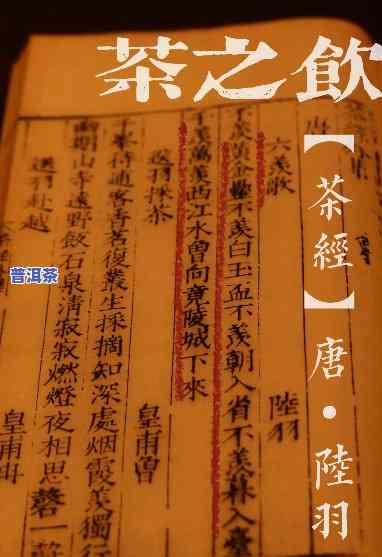 茶之飲
【茶經】唐·陸羽
六羨歌 陸羽
不羨黃金罍不羨白玉盃不羨朝入省不羨暮入臺
千羨萬羨西江水曾向竟陵城下來
送羽採茶 皇甫曾
千峯待逋客香茗復叢生採摘知深處烟霞羨獨行
幽期山寺遠野飯石泉清寂寂燃燈夜相思磬一
送羽赴越 皇甫冉
普洱茶